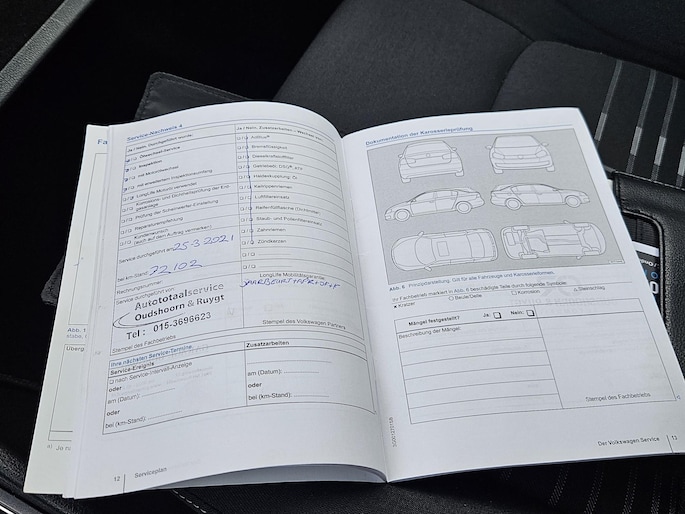 Service-Nachweis 4
Ja / Nein, Durchgeführt wurde:
Ölwechsel-Service
Inspektion
mit Motorölwechsel
mit erweitertem Inspektionsumfang
LongLife Motoröl verwendet
Prüfung der Scheinwerfer-Einstellung
Reparaturempfehlung
Service durchgeführt am 25-3-2021
bei km-Stand: 22.102
Rechnungsnummer:
Service durchgeführt von:
Autototaalservice
Oudshoorn & Ruygt
Tel : 015-3696623
Stempel des Fachbetriebs
Ja / Nein, Zusatzarbeiten
AdBlue®
Bremsflüssigkeit
Dieselkraftstofffilter
Haldexkupplung: Öl
Keilrippenriemen
Luftfiltereinsatz
Staub- und Pollenfiltereinsatz
Zahnriemen
Zündkerzen
LongLife Mobilitätsgarantie:
Stempel des Volkswagen Partners
Ihre nächsten Service-Termine.
Service-Ereignis
nach Service-Intervall-Anzeige
oder
am (Datum):
oder
bei (km-Stand):
Zusatzarbeiten
am (Datum):
oder
bei (km-Stand):
12 Serviceplan
Dokumentation der Karosserieprüfung
Abb. 6 Prinzipdarstellung: Gilt für alle Fahrzeuge und Karosserieformen.
Ihr Fachbetrieb markiert in Abb. 6 beschädigte Teile durch folgende Symbole:
× Kratzer ○ Beule/Delle □ Korrosion Steinschlag
Mängel festgestellt? Ja: Nein:
Beschreibung der Mängel:
Stempel des Fachbetriebs
Der Volkswagen Service 13